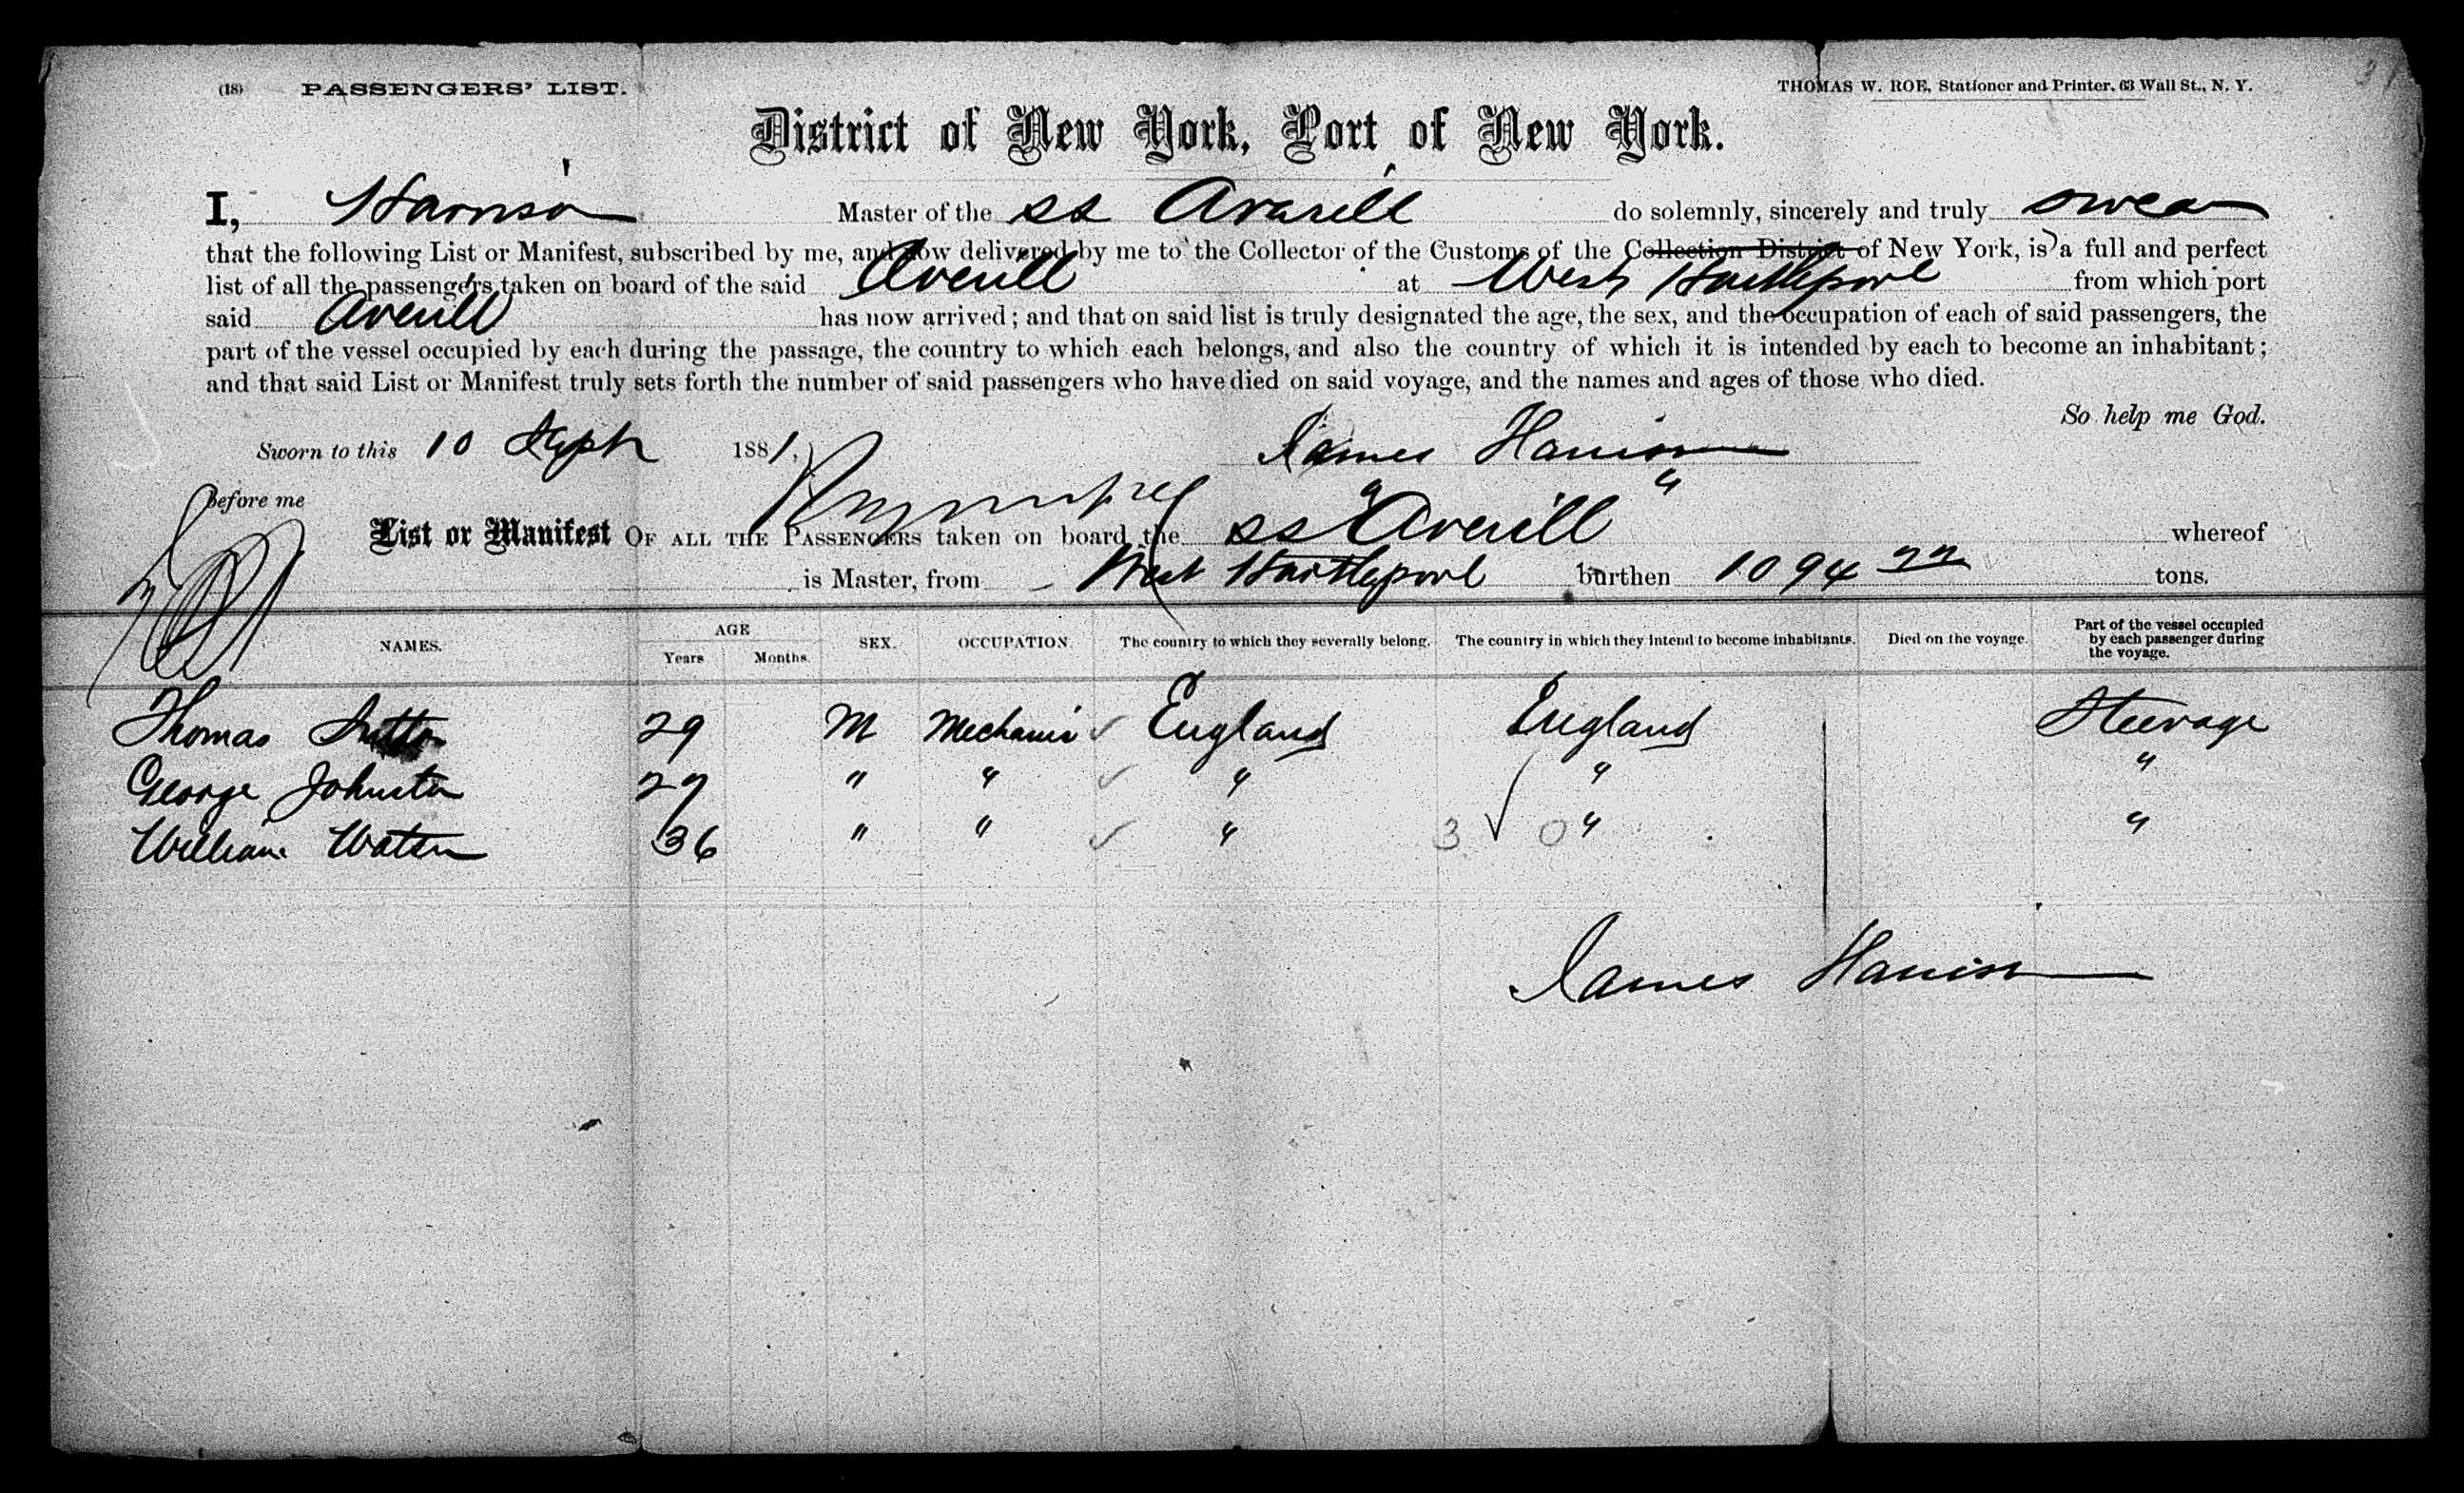 (18) PASSENGERS' LIST.
THOMAS W. ROE, Stationer and Printer, 63 Wall St., N. Y.
District of New York, Port of New York.
I, Harrison Master of the SS Avarill do solemnly, sincerely and truly swear
that the following List or Manifest, subscribed by me, and now delivered by me to the Collector of the Customs of the Collection District of New York, is a full and perfect
list of all the passengers taken on board of the said Averill at West Hartlepool from which port
said Averill has now arrived; and that on said list is truly designated the age, the sex, and the occupation of each of said passengers, the
part of the vessel occupied by each during the passage, the country to which each belongs, and also the country of which it is intended by each to become an inhabitant;
and that said List or Manifest truly sets forth the number of said passengers who have died on said voyage, and the names and ages of those who died.
So help me God.
Sworn to this 10 Sept 1881, James Harrison
Before me
List or Manifest OF ALL THE PASSENGERS taken on board the SS "Averill" whereof
is Master, from West Hartlepool burthen 1094 tons.
NAMES. AGE Years Months. SEX. OCCUPATION. The country to which they severally belong. The country in which they intend to become inhabitants. Died on the voyage. Part of the vessel occupied by each passenger during the voyage.
Thomas 29 M Mechanic England England Steerage
George Johnston 27 " " " " "
William 36 " " " 3 0 " "
James Harrison